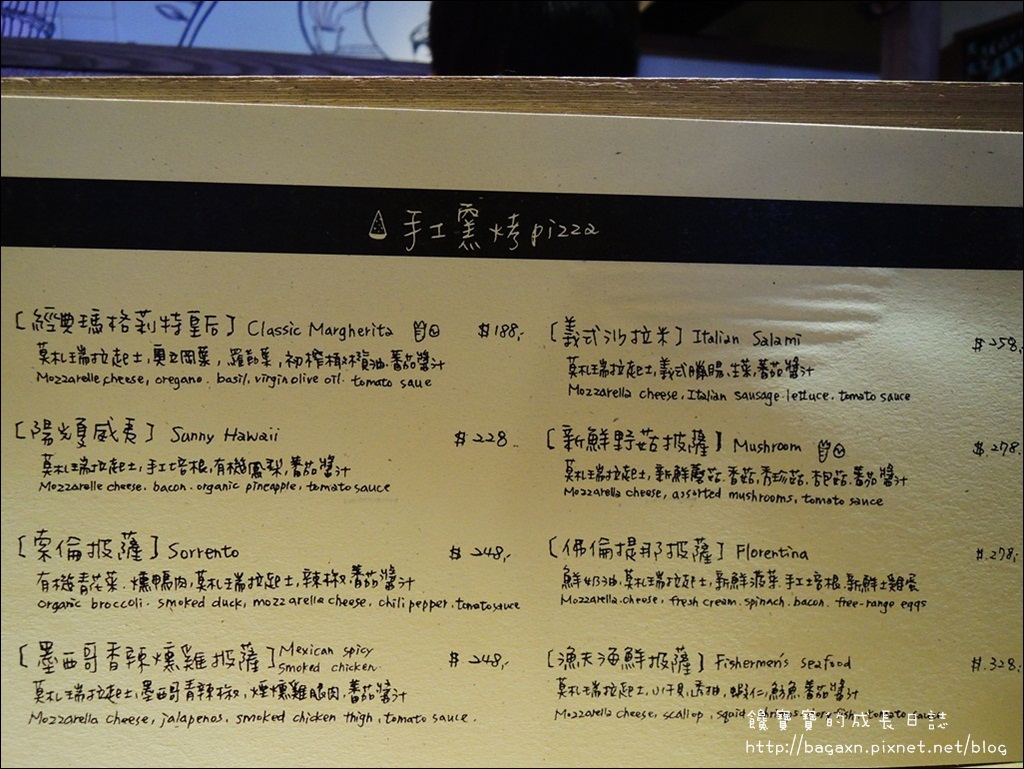 手工窯烤pizza
[經典瑪格莉特皇后] Classic Margherita $188,-
莫札瑞拉起士,奧立岡葉,羅勒葉,初榨橄欖油.蕃茄醬汁
Mozzarelle cheese, oregano. basil, virgin olive oil. tomato saue
[陽光夏威夷] Sunny Hawaii $228
莫札瑞拉起士,手工培根,有機鳳梨,蕃茄醬汁
Mozzarelle cheese. bacon. organic pineapple, tomato sauce
[索倫披薩] Sorrento $248,-
有機青花菜.燻鴨肉,莫札瑞拉起士,辣椒.蕃茄醬汁
organic broccoli. smoked duck, mozzarella cheese, chili pepper. tomato sauce
[墨西哥香辣燻雞披薩] Mexican spicy smoked chicken. $248,-
莫札瑞拉起士,墨西哥青辣椒,煙燻雞腿肉.蕃茄醬汁
Mozzarella cheese, jalapenos, smoked chicken thigh, tomato sauce.
[義式沙拉米] Italian Salami $258,
莫札瑞拉起士,義式臘腸.生菜.蕃茄醬汁
Mozzarella cheese, Italian sausage. lettuce. tomato sauce
[新鮮野菇披薩] Mushroom $278.
莫札瑞拉起士,新鮮蘑菇.香菇,秀珍菇.杏鮑菇.蕃茄醬汁
Mozzarella cheese, assorted mushrooms, tomato sauce
[佛倫提那披薩] Florentina $.278,-
鮮奶油,莫札瑞拉起士,新鮮菠菜.手工培根.新鮮土雞蛋
Mozzarella cheese, fresh cream. spinach. bacon. free-range eggs
[漁夫海鮮披薩] Fishermen's seafood $.328,-
莫札瑞拉起士,小干貝,透抽,蝦仁,魴魚.蕃茄醬汁
Mozzarella cheese, scallop, squid, tomato
饞寶寶的成長日誌
http://bagaxn.pixnet.net/blog